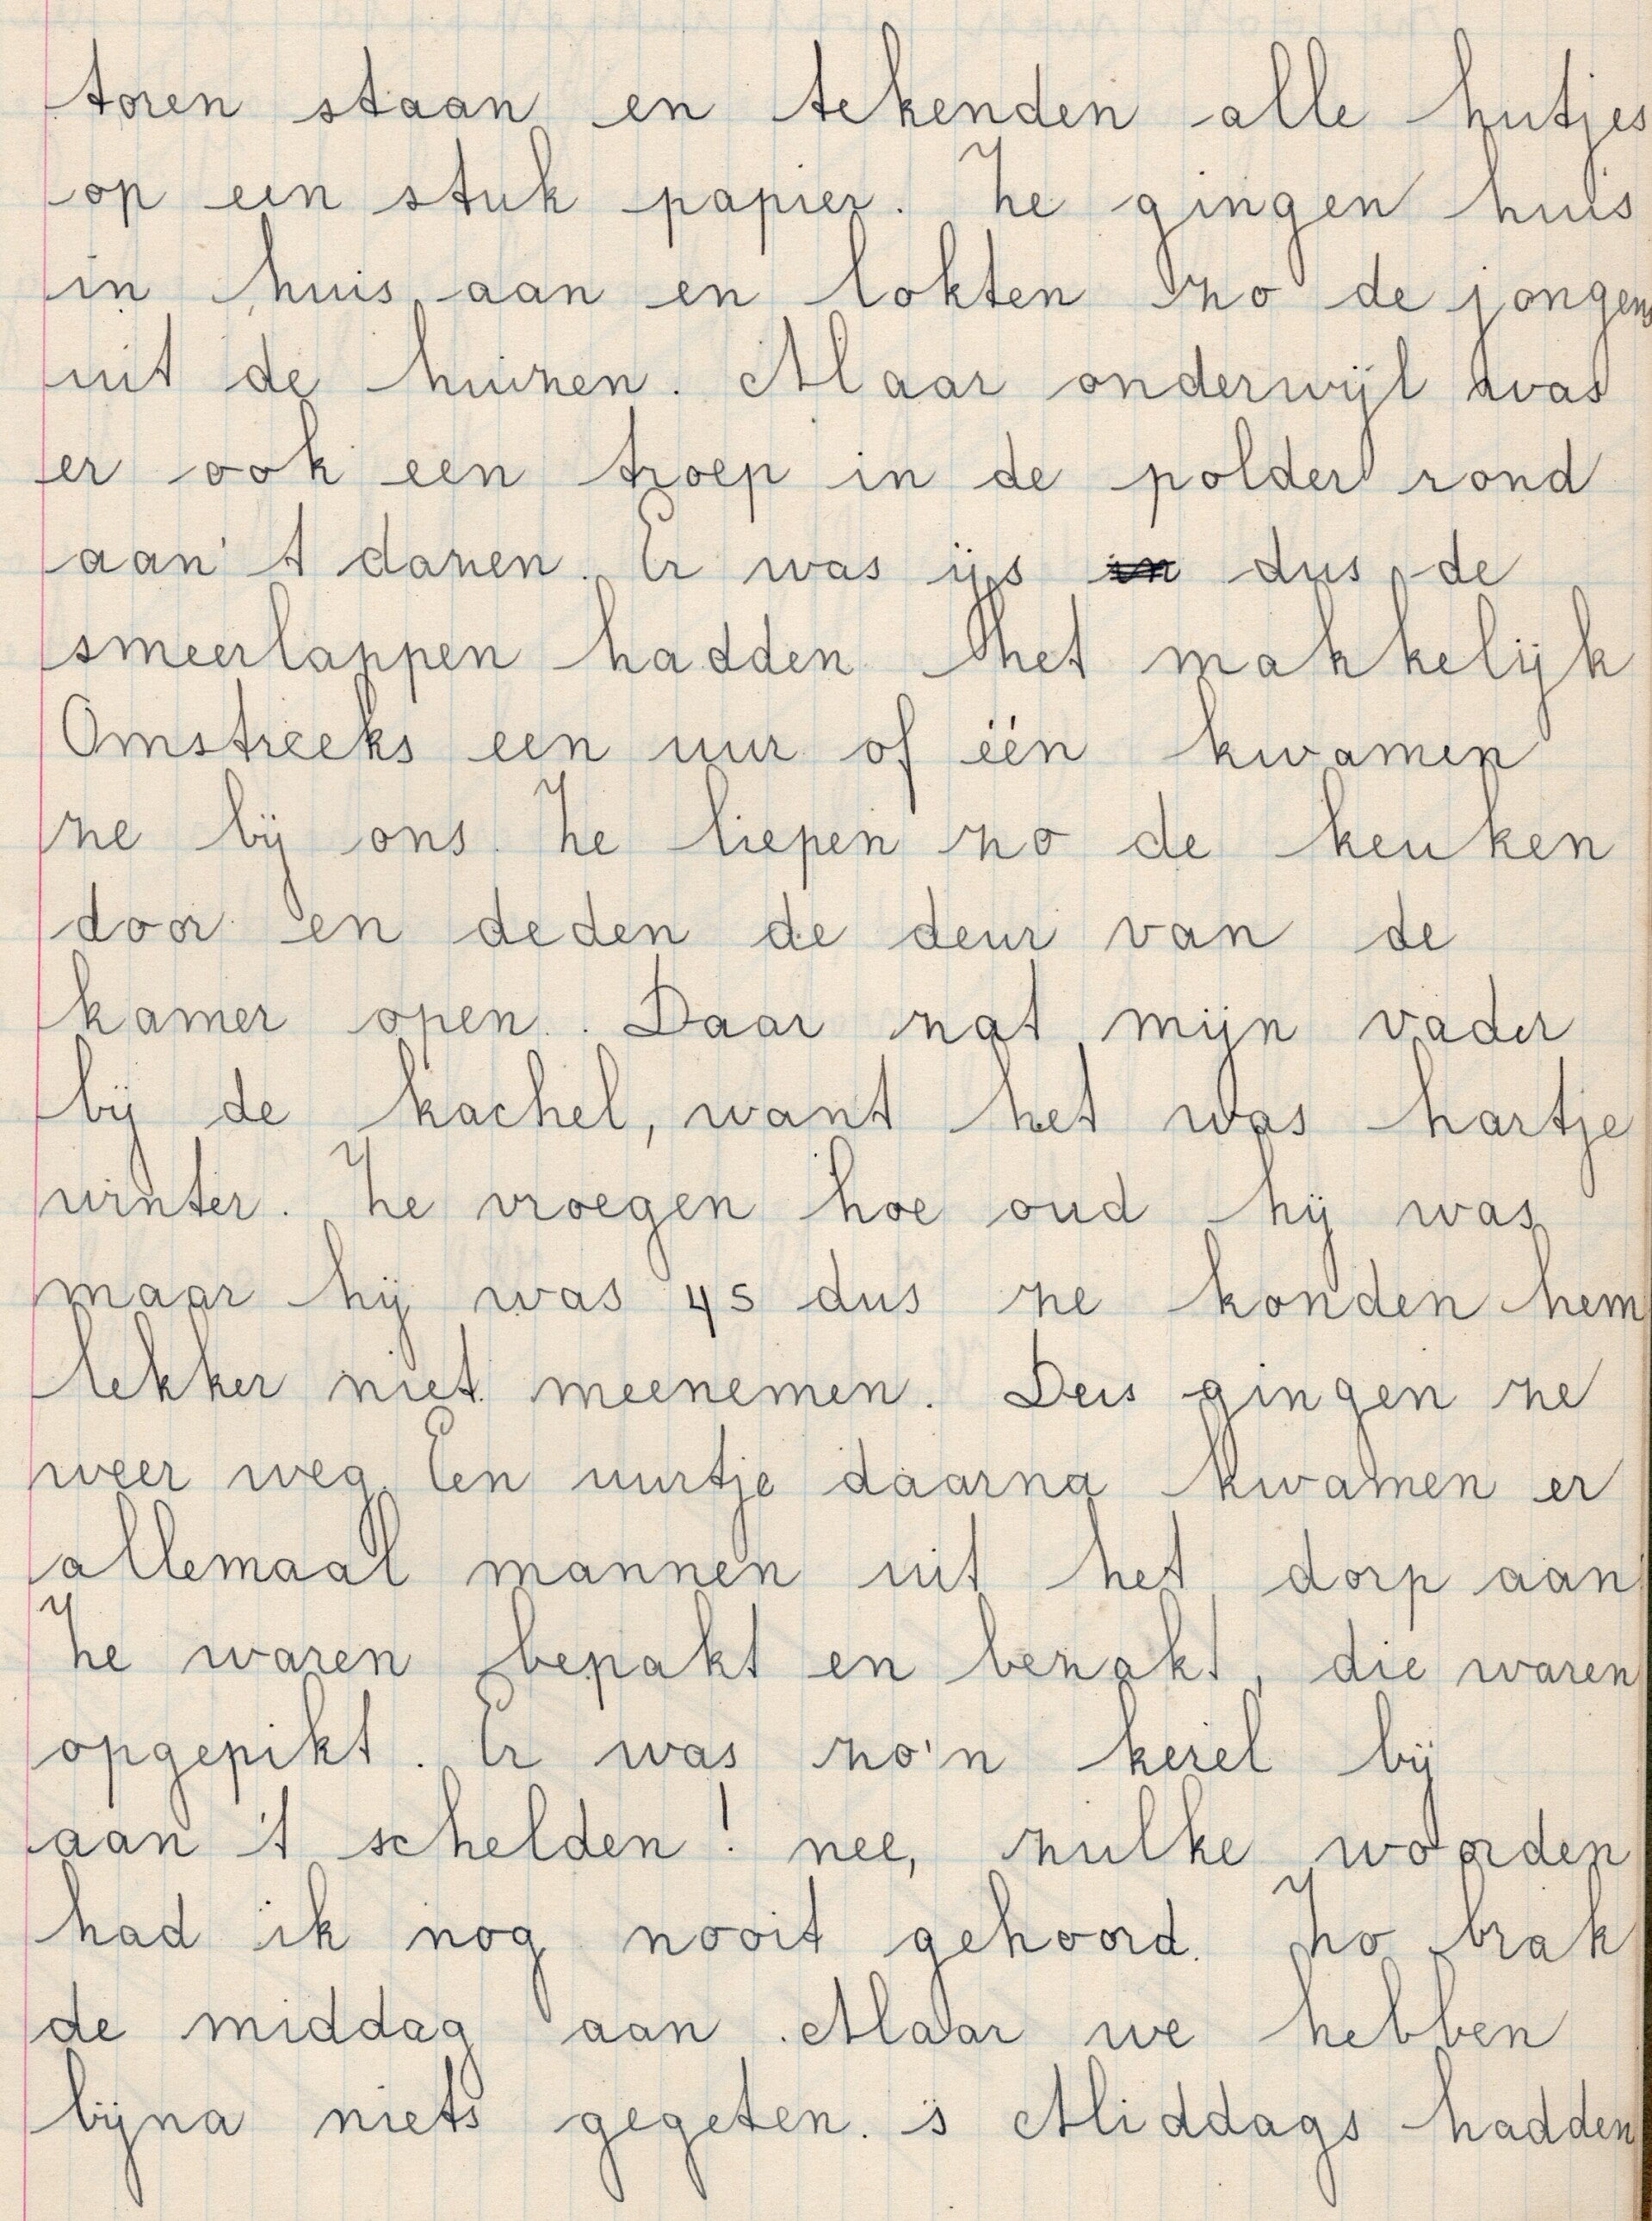 toren staan en tekenden alle hutjes
op een stuk papier. Ze gingen huis
in huis aan en lokten zo de jongens
uit de huizen. Maar onderwijl was
er ook een troep in de polder rond
aan 't dazen. Er was ijs in dus de
smeerlappen hadden het makkelijk
Omstreeks een uur of één kwamen
ze bij ons. Ze liepen zo de keuken
door en deden de deur van de
kamer open. Daar zat mijn vader
bij de kachel, want het was hartje
winter. Ze vroegen hoe oud hij was
maar hij was 45 dus ze konden hem
lekker niet meenemen. Dus gingen ze
weer weg. Een uurtje daarna kwamen er
allemaal mannen uit het dorp aan
Ze waren bepakt en bezakt, die waren
opgepikt. Er was zo'n kerel bij
aan 't schelden! nee, zulke woorden
had ik nog nooit gehoord. Zo brak
de middag aan. Maar we hebben
bijna niets gegeten. 's Middags hadden